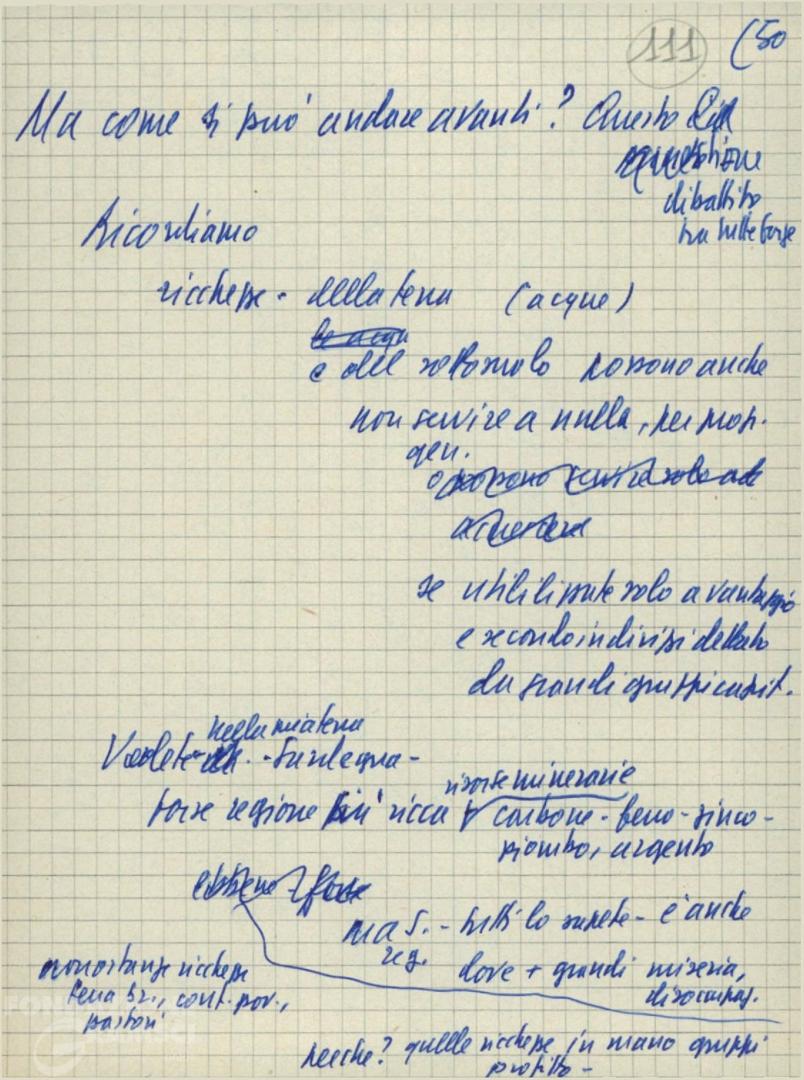 111 (50
Ma come si può andare avanti? Questo è il
questione
dibattito
tra tutte forze
Ricordiamo
ricchezze - della terra (acque)
le acque
e del sottosuolo possono anche
non servire a nulla, per prop.
gen.
o possono servire solo ad
accrescere
se utilizzate solo a vantaggio
e secondo indirizzi dettato
da grandi gruppi capit.
nella mia terra
Vedete - Sardegna -
risorse minerarie
forse regione più ricca carbone - ferro - zinco -
piombo, argento
ma S. - tutti lo sapete - è anche
reg. dove + grandi miseria,
disoccupaz.
nonostante ricchezze
terra br., cont. pov.,
pastori
perché? quelle ricchezze in mano gruppi
profitto -